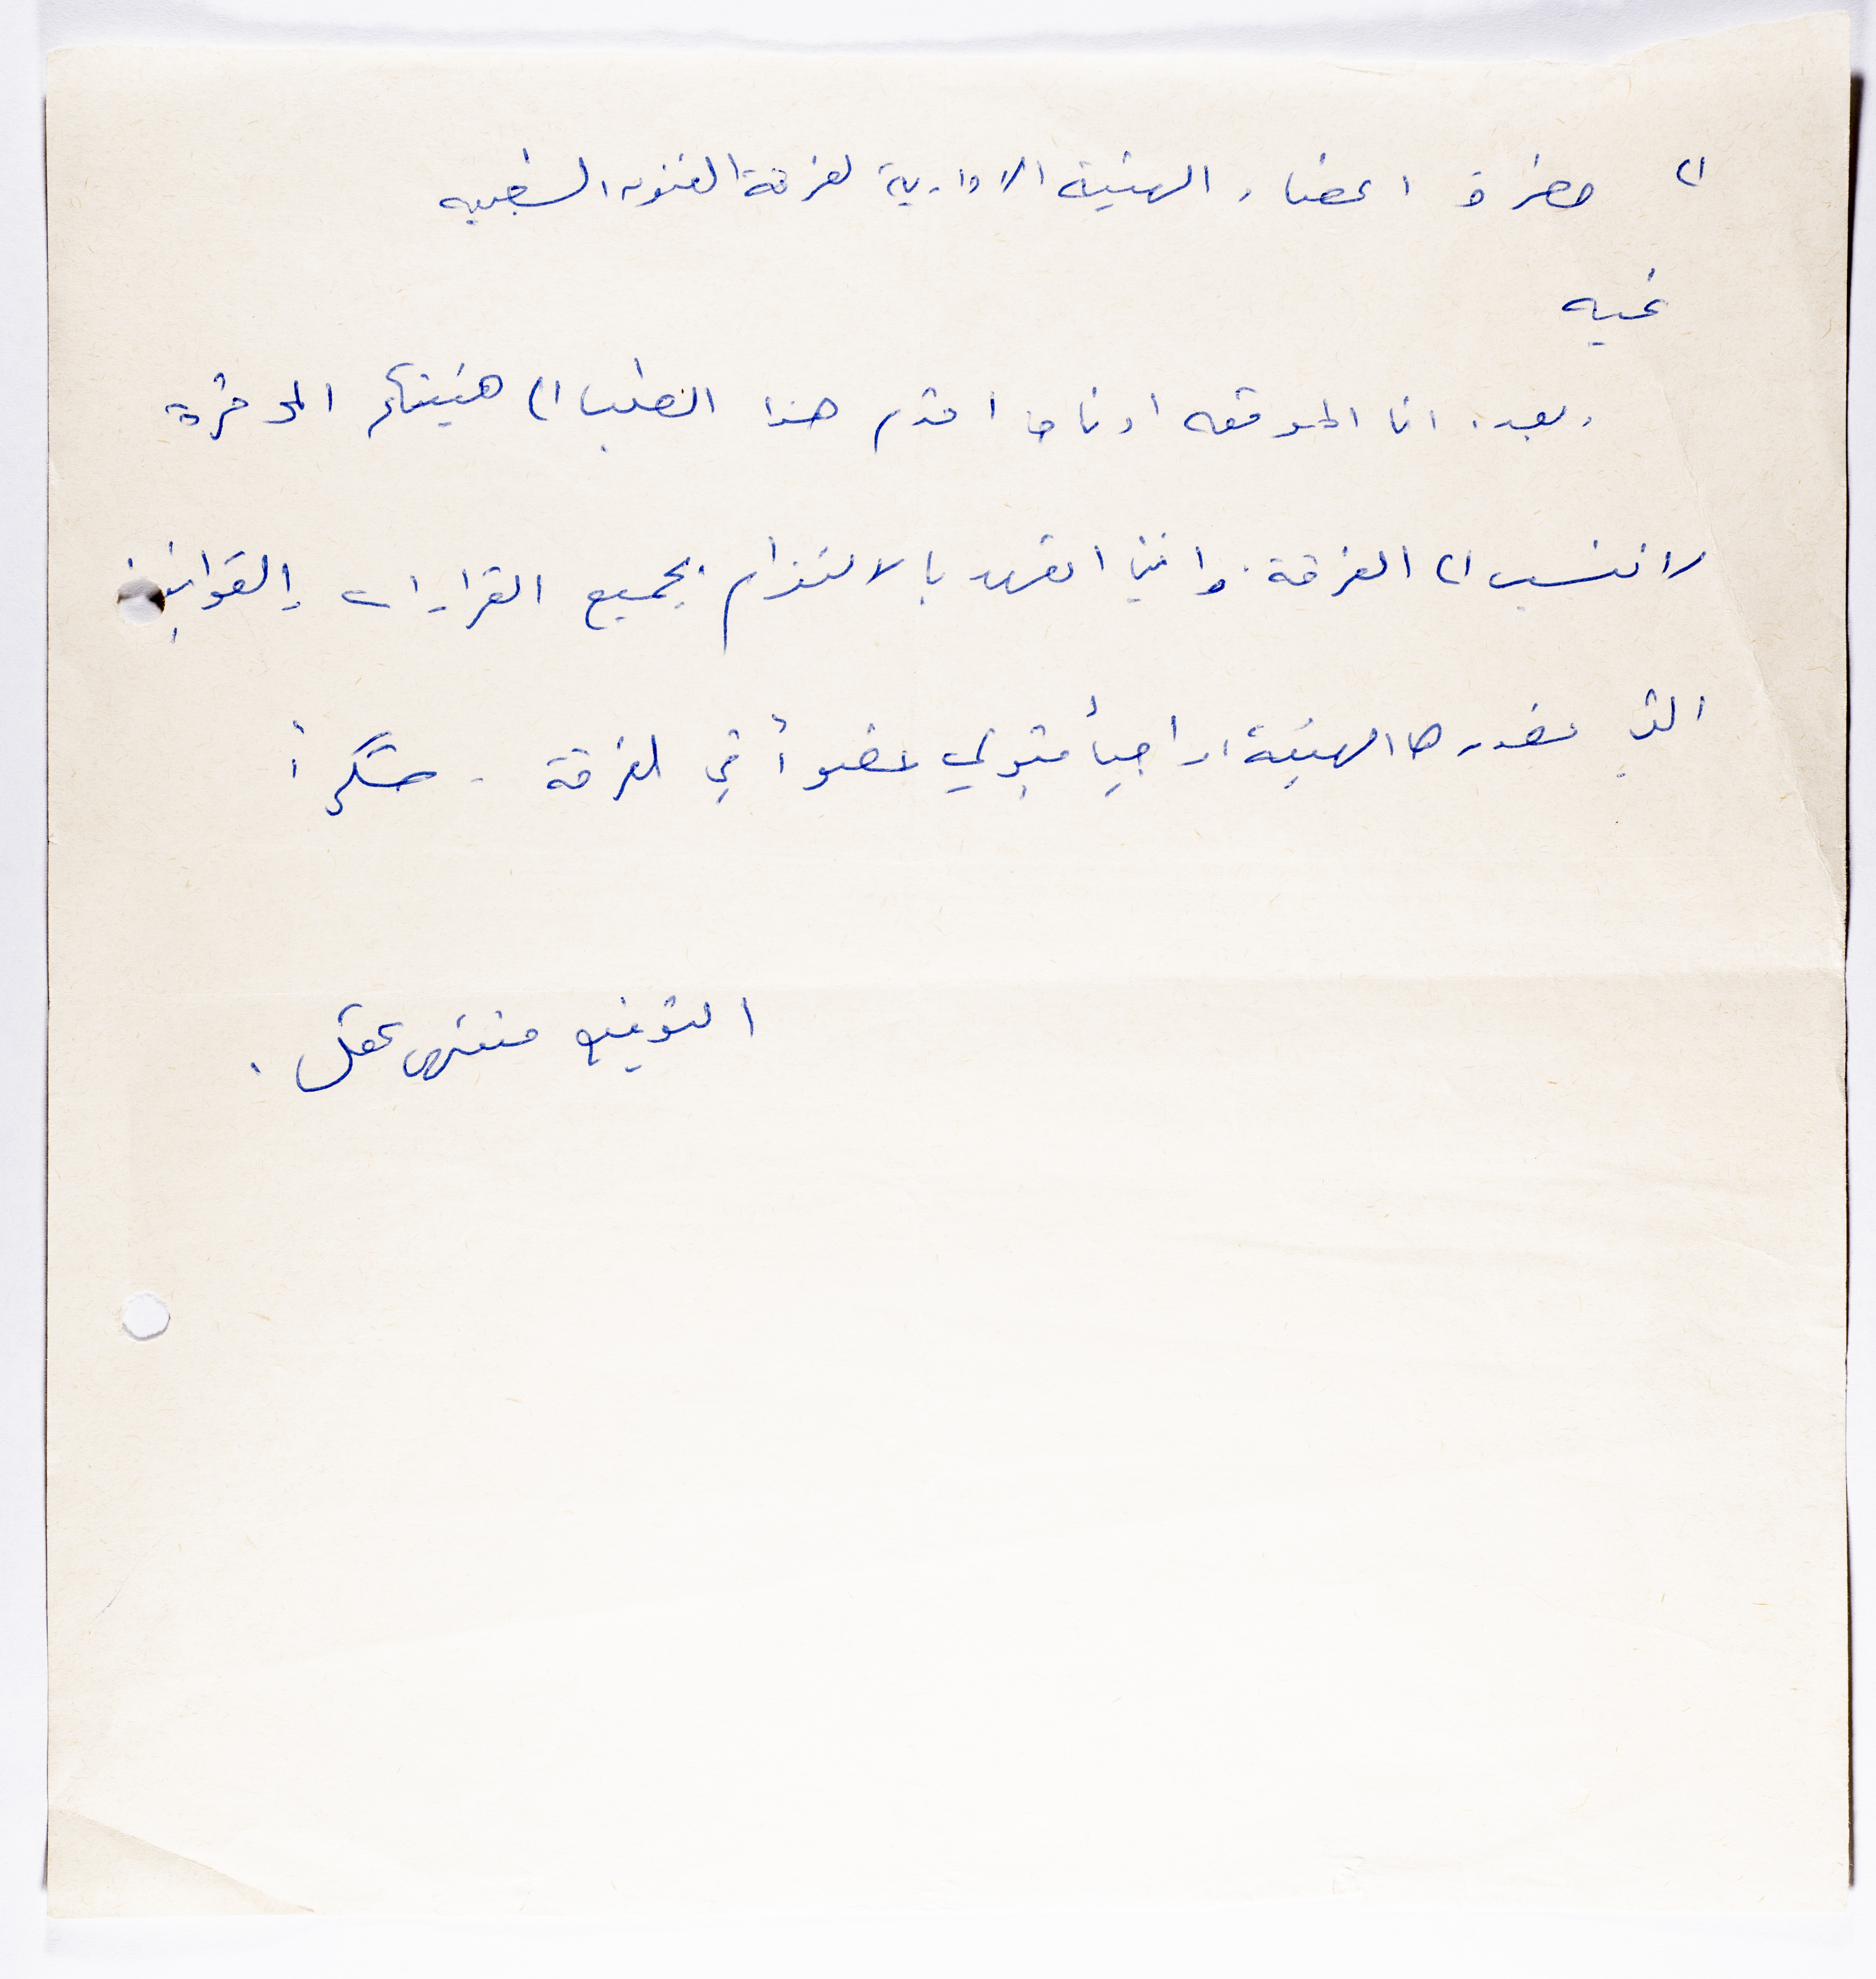 الى حضرة اعضاء الهيئة الادارية لفرقة الفنون الشعبيه
تحيه
وبعد، انا الموقعه ادناه اقدم هذا الطلب الى هيئتكم الموقرة
لانتسب الى الفرقة. وانني اتعهد بالالتزام بجميع القرارات والقوانين
التي تصدرها الهيئة، راجياً قبولي عضواً في الفرقة - شكراً
التوقيع منتهى عقل.